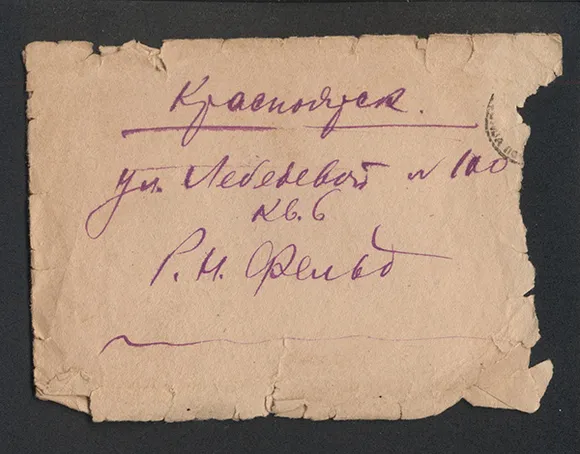 Красноярск.
ул. Лебедевой № 100
кв. 6
Р. Н. Фельд